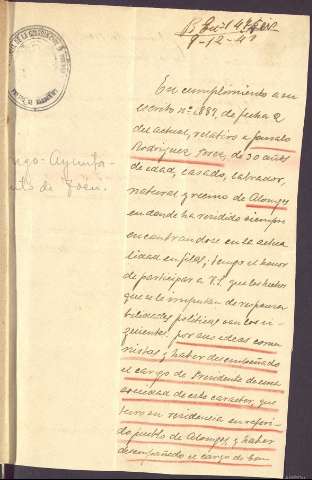 7-12-4
En cumplimiento a su
escrito nº 1889, de fecha 2
del actual, relativo a Gonzalo
Rodriguez Perez, de 30 años
de edad, casado, labrador,
natural y vecino de Alonges
en donde ha residido siempre
encontrandose en la actua
lidad en filas; tengo el honor
de participar a V.S. que los hechos
que se le imputan de responsa
bilidades politicas son los si-
guientes: por sus ideas comu
nistas y haber desempeñado
el cargo de Presidente de una
sociedad de este caracter, que
tuvo su residencia en referi-
do pueblo de Alonges, y haber
desempeñado el cargo de
Ayunta-